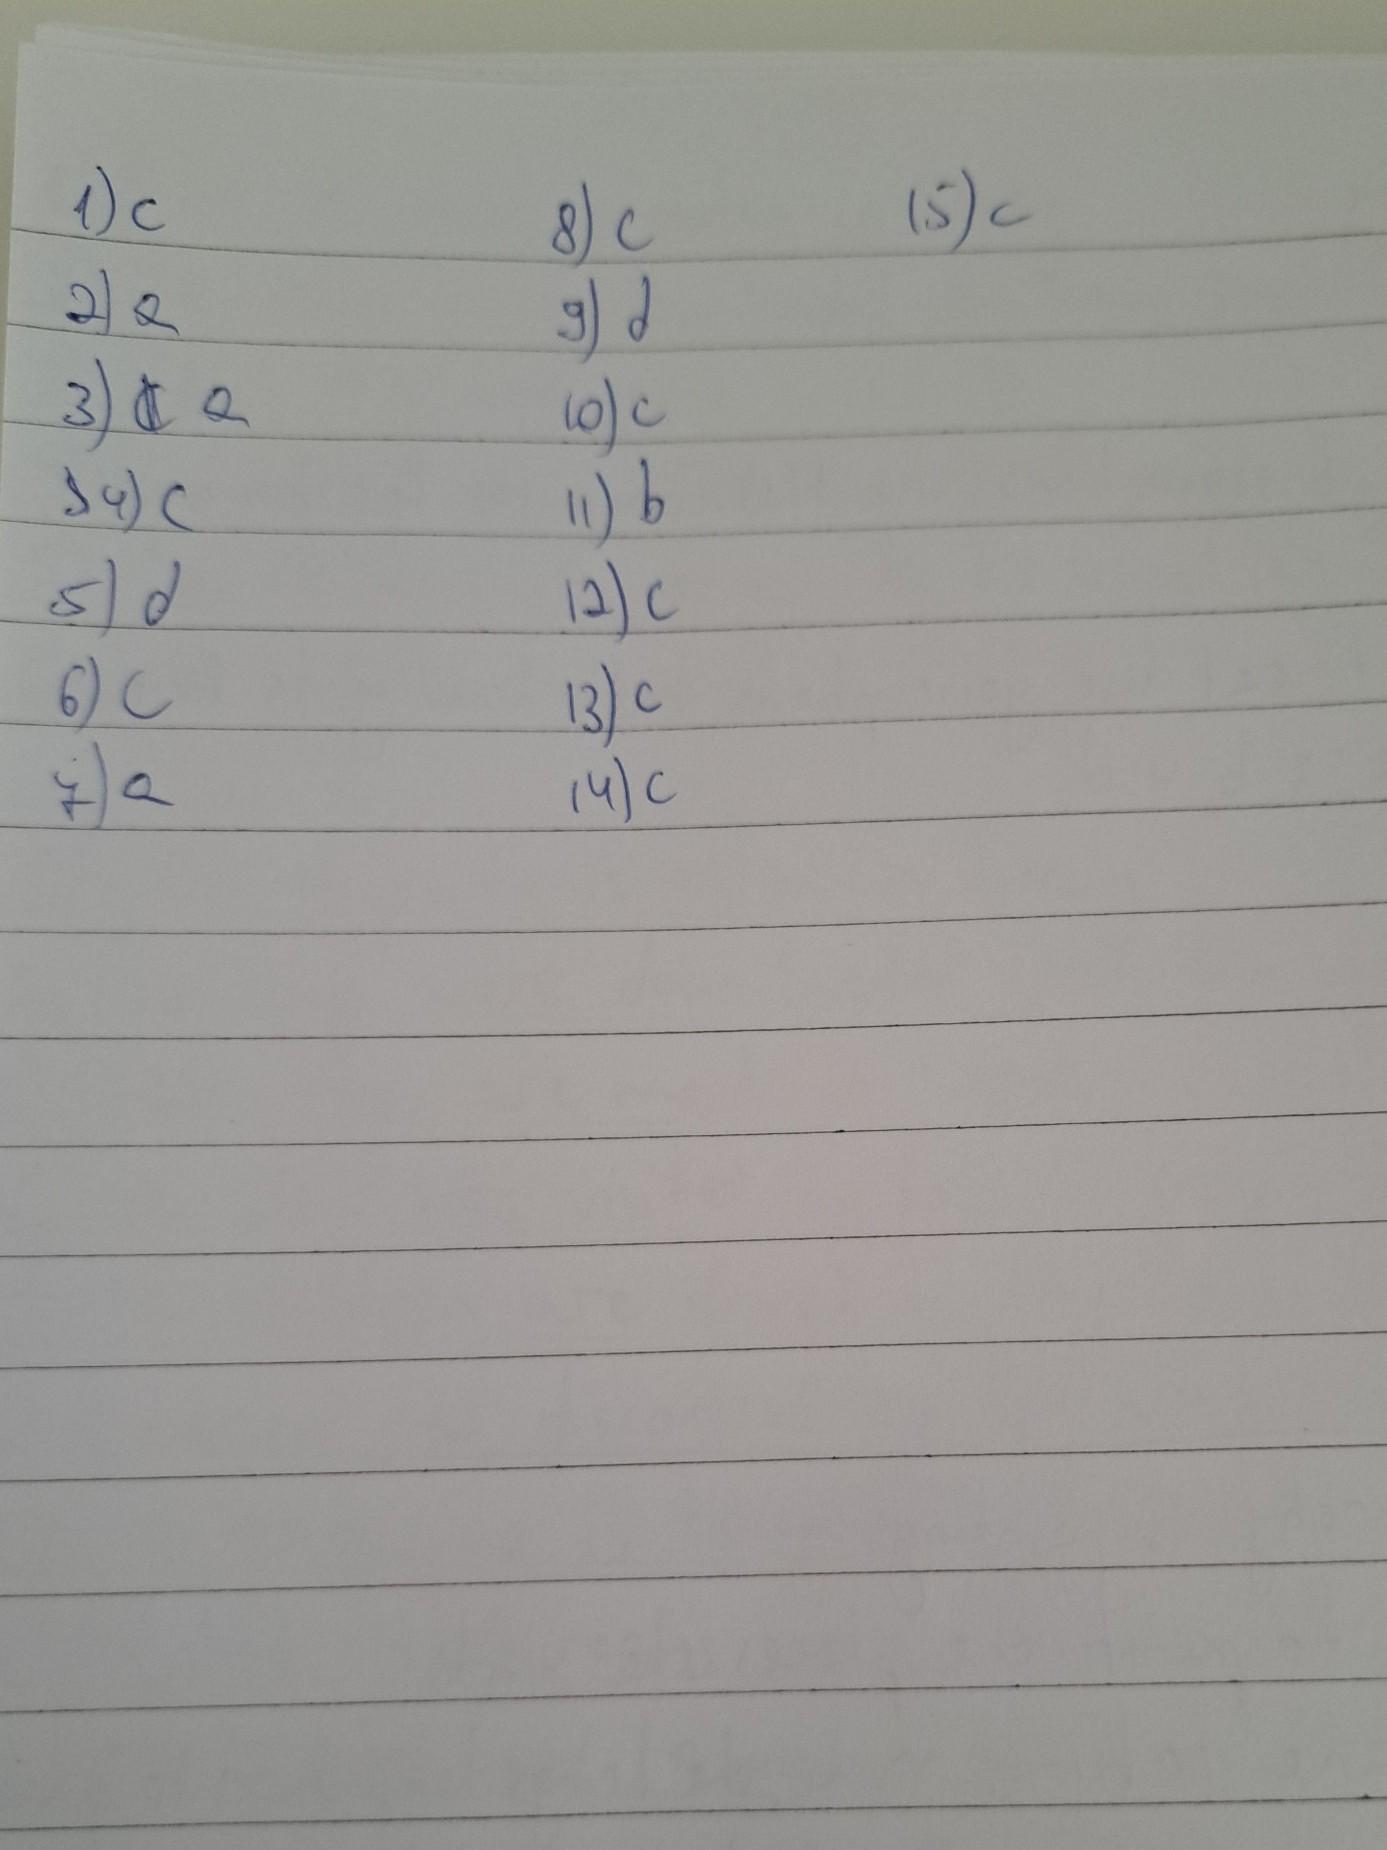 1) c
2) a
3) a
4) c
5) d
6) c
7) a
8) c
9) d
10) c
11) b
12) c
13) c
14) c
15) c